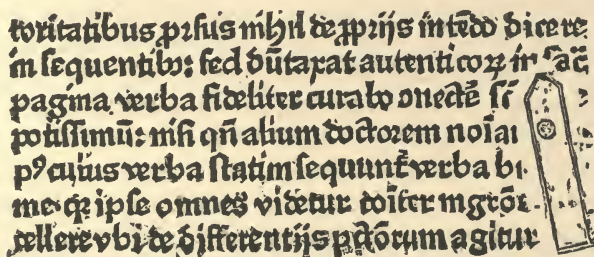 toritatibus p̲rſus nihil de ꝓprijs intẽdo dicere
in sequentibꝰ: ſed dũtaxat autenticoꝝ in ſac̃
pagina verba fideliter curabo ↄnectẽ
potiſſimũ: niſi qñ alium doctorem noĩa
pꝰ cuius verba ſtatim ſequunt̃ verba
me ipſe omnes videtur
cellere vbi de differentijs pctõrum agitur